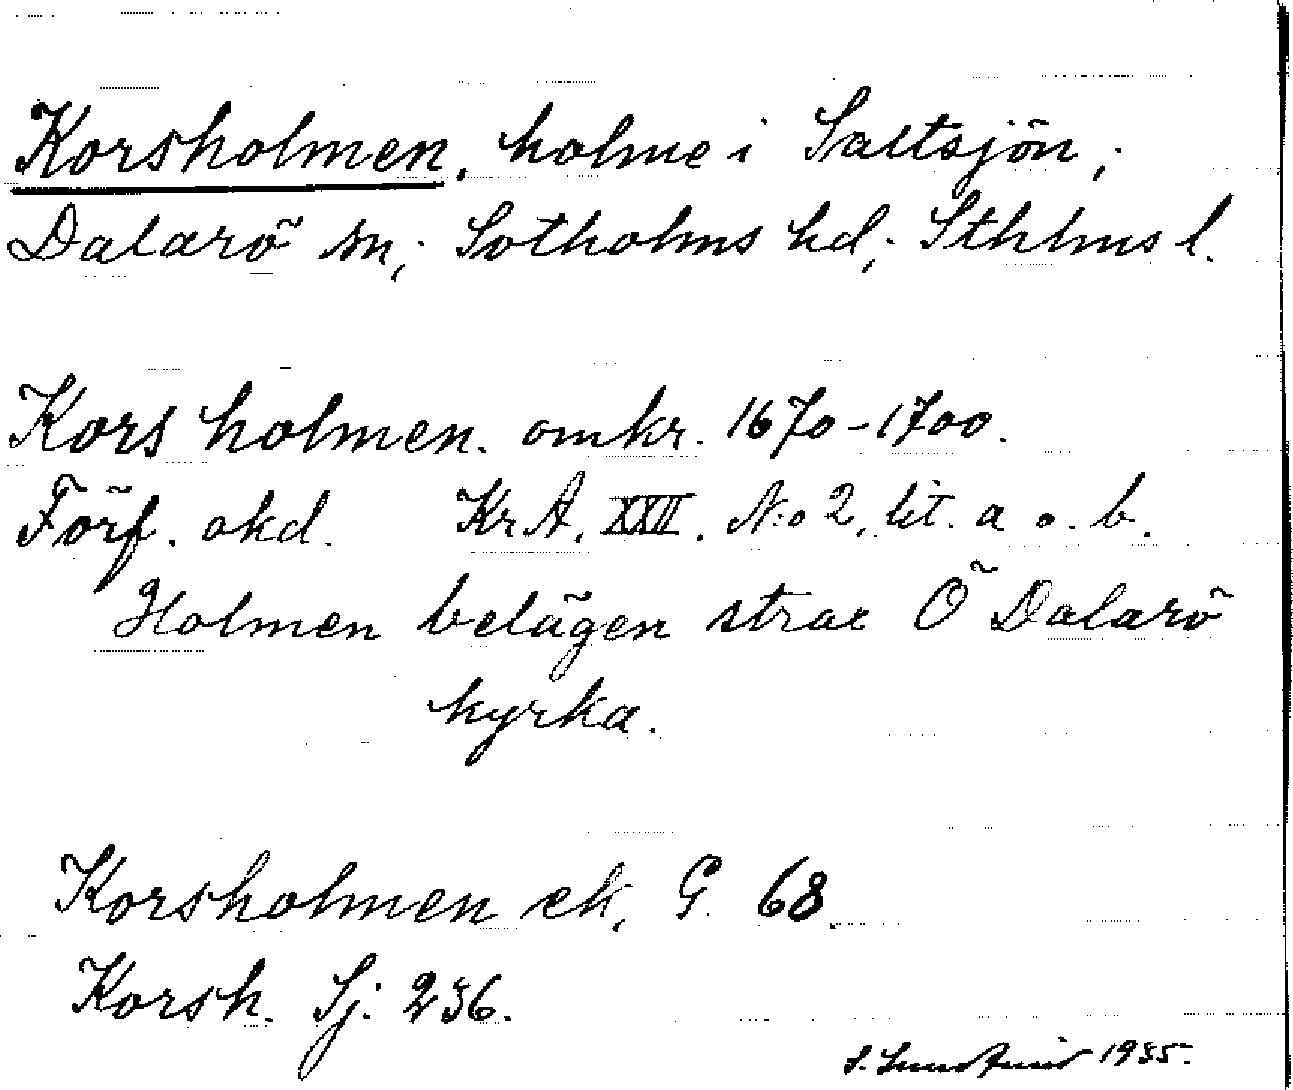 Korsholmen, holme i Saltsjön,
Dalarö sn, Sotholms hd, Sthlms l.
Kors holmen. omkr. 1670-1700.
Förf. okd. KrA. XXII. N:o 2, lit. a o. b.
Holmen belägen strax Ö Dalarö
kyrka.
Korsholmen ek. G. 68.
Korsh. Sj. 236.
S. 1935.